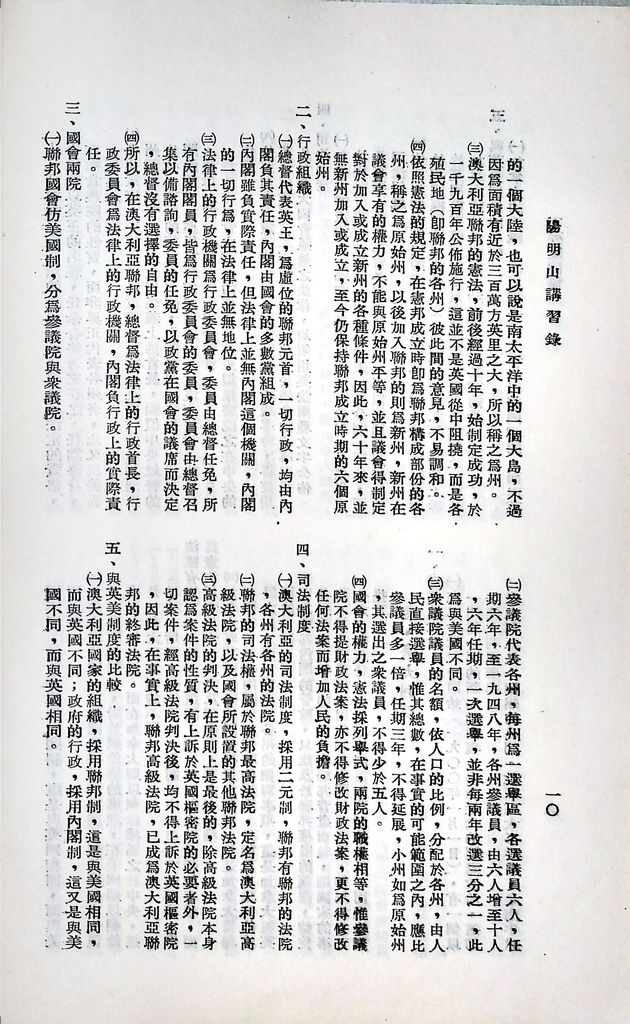 陽明山講習錄
一〇
的一個大陸，也可以說是南太平洋中的一個大島，不過
因爲面積有近於三百萬方英里之大，所以稱之爲州。
㈢澳大利亞聯邦的憲法，前後經過十年，始制定成功，於
一千九百年公佈施行，這並不是英國從中阻撓，而是各
殖民地（即聯邦的各州）彼此間的意見，不易調和。
㈣依照憲法的規定，在憲邦成立時即爲聯邦構成部份的各
州，稱之爲原始州，以後加入聯邦的則爲新州，新州在
議會享有的權力，不能與原始州平等，並且議會得制定
對於加入或成立新州的各種條件，因此，六十年來，並
無新州加入或成立，至今仍保持聯邦成立時期的六個原
始州。
二、行政組織
㈠總督代表英王，爲虛位的聯邦元首，一切行政，均由內
閣負其責任，內閣由國會的多數黨組成。
㈡內閣雖負實際責任，但法律上並無內閣這個機關，內閣
的一切行爲，在法律上並無地位。
㈢法律上的行政機關爲行政委員會，委員由總督任免，所
有內閣閣員，皆爲行政委員會的委員，委員會由總督召
集以備諮詢，委員的任免，以政黨在國會的議席而決定
，總督沒有選擇的自由。
㈣所以，在澳大利亞聯邦，總督爲法律上的行政首長，行
政委員會爲法律上的行政機關，內閣負行政上的實際責
任。
三、國會兩院
㈠聯邦國會仿美國制，分爲參議院與衆議院。
㈡參議院代表各州，每州爲一選舉區，各選議員六人，任
期六年，至一九四八年，各州參議員，由六人增至十人
，六年任期，一次選舉，並非每兩年改選三分之一，此
爲與美國不同。
㈢衆議院議員的名額，依人口的比例，分配於各州，由人
民直接選舉，惟其總數，在事實的可能範圍之內，應比
參議員多一倍，任期三年，不得延展，小州如爲原始州
，其選出之衆議員，不得少於五人。
㈣國會的權力，憲法採列舉式，兩院的職權相等，惟參議
院不得提財政法案，亦不得修改財政法案，更不得修改
任何法案而增加人民的負擔。
四、司法制度
㈠澳大利亞的司法制度，採用二元制，聯邦有聯邦的法院
，各州有各州的法院。
㈡聯邦的司法權，屬於聯邦最高法院，定名爲澳大利亞高
級法院，以及國會所設置的其他聯邦法院。
㈢高級法院的判決，在原則上是最後的，除高級法院本身
認爲案件的性質，有上訴於英國樞密院的必要者外，一
切案件，經高級法院判決後，均不得上訴於英國樞密院
，因此，在事實上，聯邦高級法院，已成爲澳大利亞聯
邦的終審法院。
五、與英美制度的比較
㈠澳大利亞國家的組織，採用聯邦制，這是與美國相同，
而與英國不同；政府的行政，採用內閣制，這又是與美
國不同，而與英國相同。